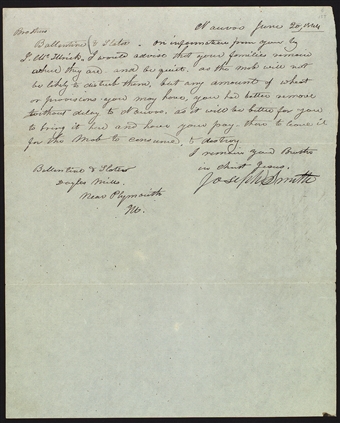 Nauvoo June 20 1844
Brethren
Ballantine & Slater. on information from you by
I would advise that your families remain
where they are. and be quiet. as the mob will not
be likely to disturb them, but any amounts of wheat
or provisions you may have, you had better remove
without delay to Nauvoo. as it will be better for you
to bring it here and have your pay. than to leave it
for the Mob to consume, to destroy.
I remain your Brother
in Christ Jesus.
Joseph Smith
Ballantine & Slater
Doyles Mills
Near Plymouth